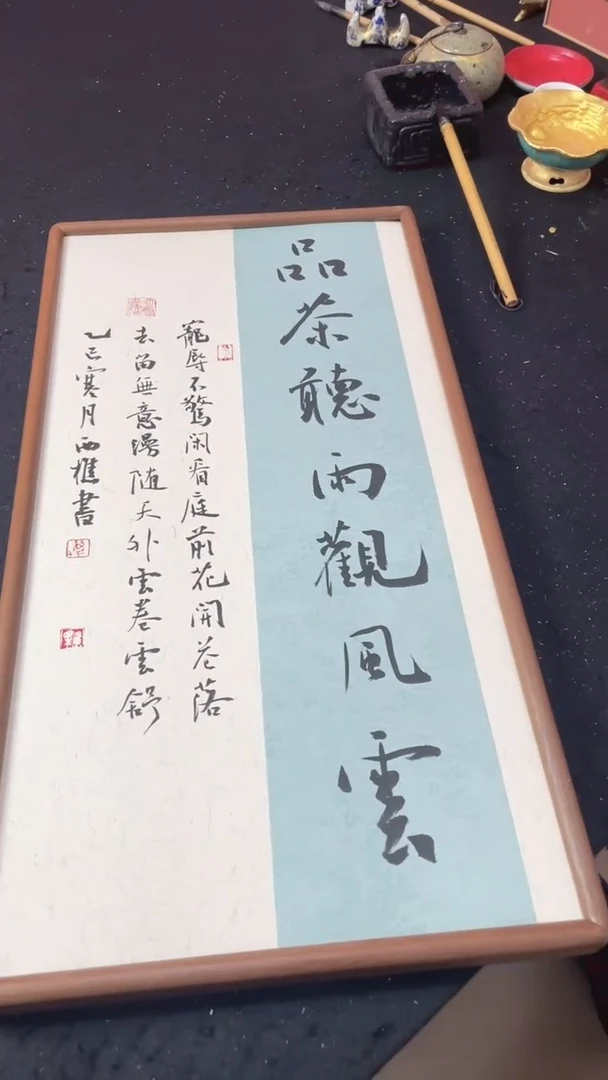 品茶聽雨觀風雲
寵辱不驚闲看庭前花開花落
去留無意漫随天外雲卷雲舒
乙巳寒月西樵書